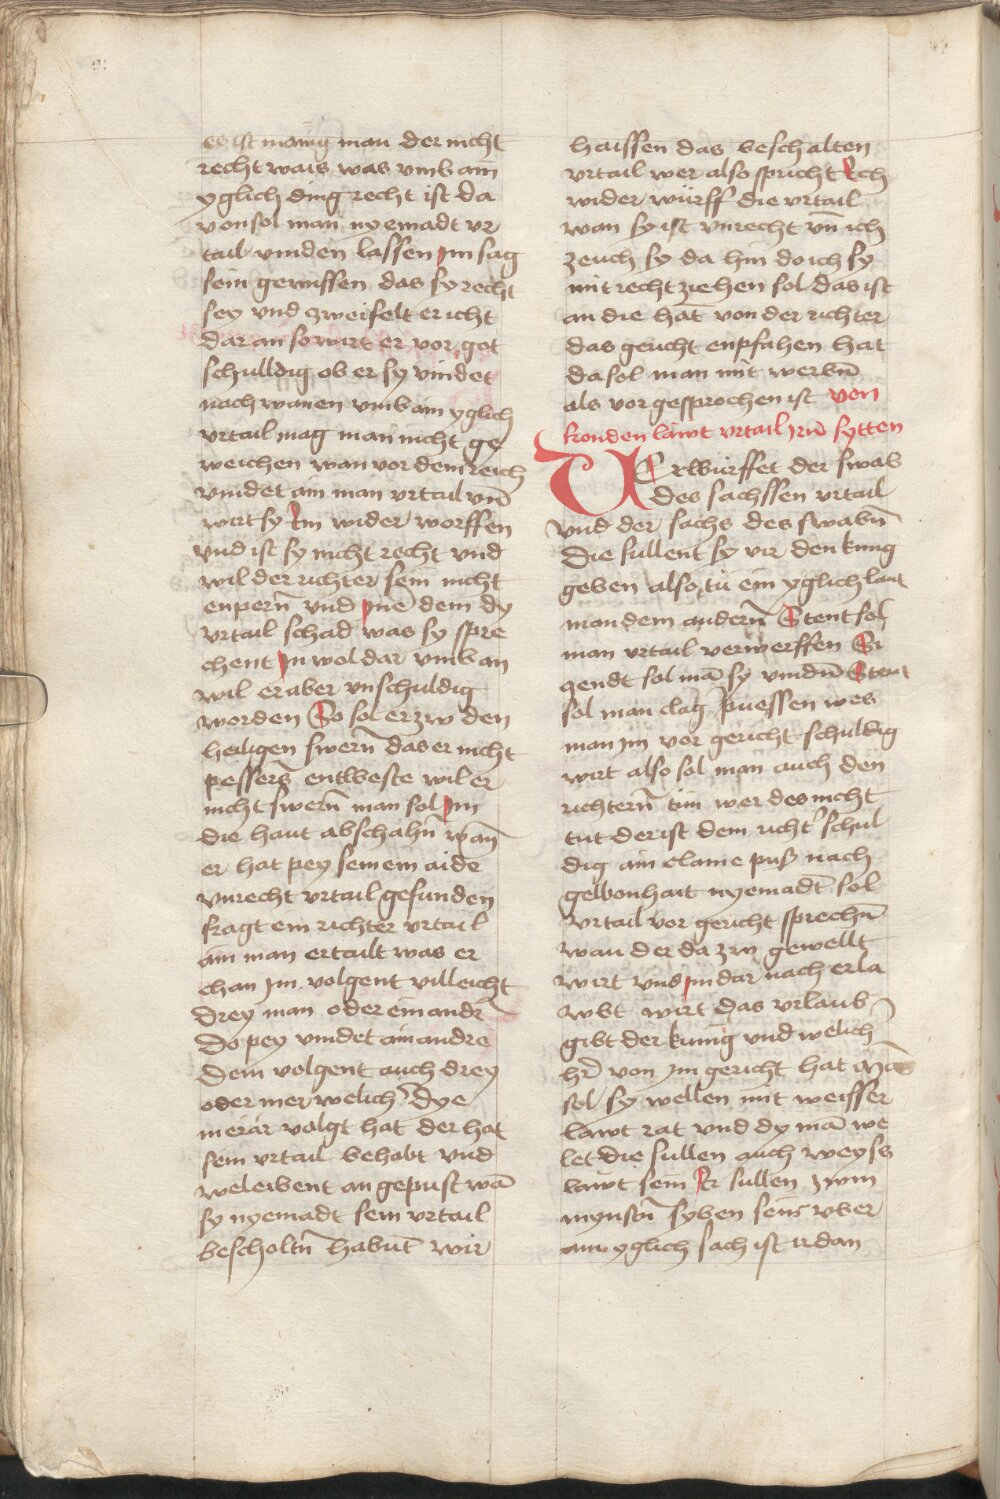 es ist manig man der nicht
recht wais was vmb ain
yglich ding recht ist da
von sol man nyemadt vr
tail vinden lassen jm sag
sein gewissen das sy recht
sey vnd zweifelt er icht
dar an so wirt er vor got
schulldig ob er sy vindet
nach wanen vmb ain yglich
vrtail mag man nicht ge
weichen wan vor dem reich
vindet ain man vrtail vnd̄
wirt sy Im wider worffen
vnd ist sy nicht recht vnd
wil der richter sein nicht
enpern̄ vnd jnē dem dy
vrtail schad was sy spre
chent jn wol dar vmb an
wil er aber vnschuldig
werden So sol er zw den
heiligen swern̄ das er nicht
pessers entweste wil er
nicht swern̄ man sol jm
die haut abschahn̄ wan̄
er hat pey seinem aide
vnrecht vrtail gefunden
fragt ein richter vrtail
ain man ertailt was er
chan jm volgent villeicht
drey man oder ein andr̄
do pey vindet ain andre
dem volgent auch drey
oder mer welich̄ dye
merär volgt hat der hat
sein vrtail behabt vnd
weleibent an gepust wā
sy nyemadt sein vrtail
bescholtn̄ habūt wir
haissen das beschalten
vrtail wer also spricht Ich
wider würff die vrtail
wan sy ist vnrecht vn̄ ich
zeuch sy da hin do ich sy
mit recht ziehen sol das ist
an die hāt von der richter
das gericht enpfahen hat
da sol man mit werbn̄
als vor gesprochen ist von
fronden läwt vrtail irn̄ sytten
VErwürffet der swab
des sachssen vrtail
vnd der sachs des swabn̄
die sullent sy vir den kung
geben also tü ein yglich laut
man dem andern̄ Stent sol
man vrtail verwerffen Si
zendt sol mā sy vindn̄ Stent
sol man clag puessen wes
man jm vor gericht schuldig
wirt also sol man auch den
richtern̄ tün wer des nicht
tut der ist dem richt̄ schul
dig ain claine puß nach
gewonhait nyemadt sol
vrtail vor gericht sprechn̄
wan der da zw gewellt
wirt vnd jm dar nach erla
wbt wirt das vrlaub
gibt der kunig vnd welich
hr̄ von jm gericht hat Mā
sol sy wellen mit weisser
läwt rat vnd dy mā we
let die sullen auch weyse
läwt sein Ir sullen zwm
mynstn̄ syben sein vber
ain yglich sach ist ir dan